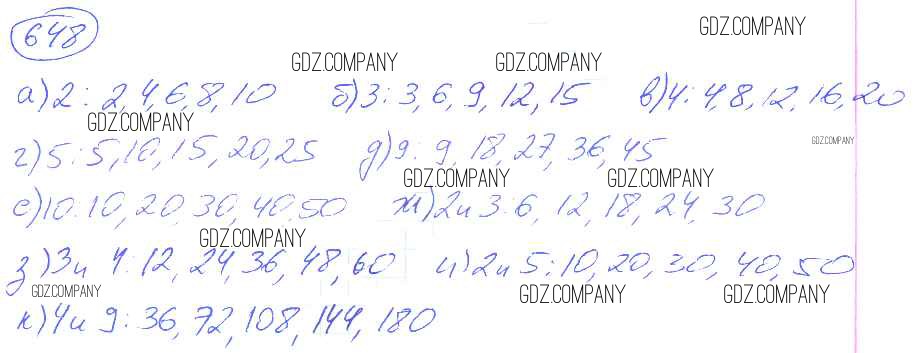 648
GDZ.COMPANY
GDZ.COMPANY GDZ.COMPANY
а) 2: 2, 4, 6, 8, 10 б) 3: 3, 6, 9, 12, 15 в) 4: 4, 8, 12, 16, 20
GDZ.COMPANY
GDZ.COMPANY
г) 5: 5, 10, 15, 20, 25 д) 9: 9, 18, 27, 36, 45
GDZ.COMPANY GDZ.COMPANY
е) 10: 10, 20, 30, 40, 50 ж) 2 и 3: 6, 12, 18, 24, 30
GDZ.COMPANY
з) 3 и 4: 12, 24, 36, 48, 60 и) 2 и 5: 10, 20, 30, 40, 50
GDZ.COMPANY GDZ.COMPANY GDZ.COMPANY
к) 4 и 9: 36, 72, 108, 144, 180